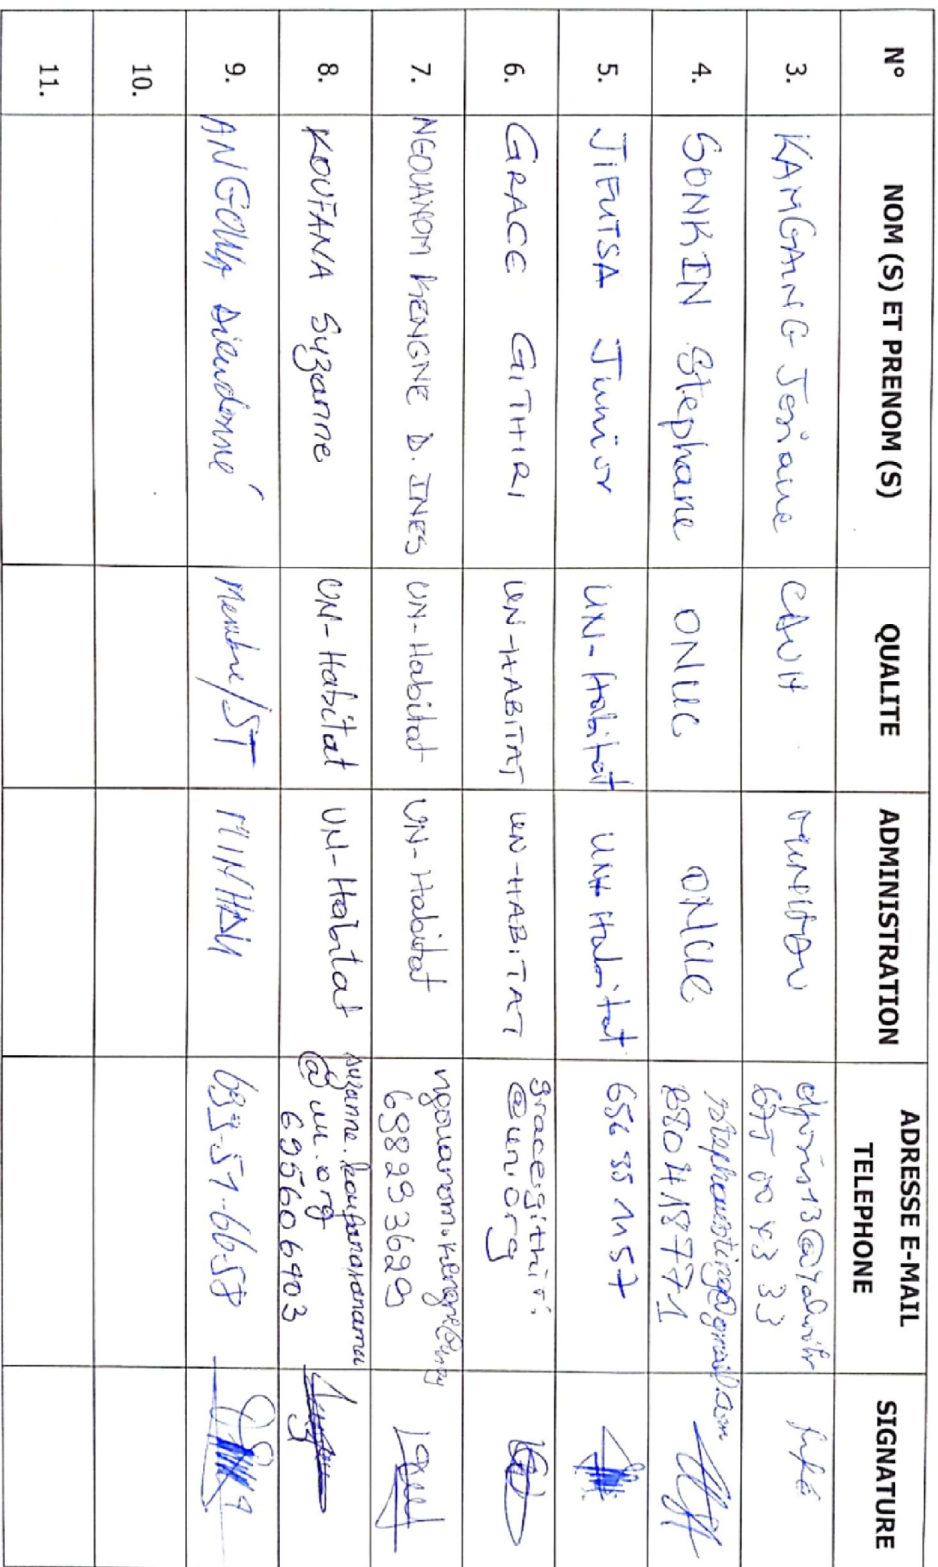 N° NOM (S) ET PRENOM (S) QUALITE ADMINISTRATION ADRESSE E-MAIL TELEPHONE SIGNATURE
3. KAMGAING Josiane
675 00 43 33
4. SONKIN Stephane ONUC ONUC
680418771
5. JIFUTSA Junior UN-Habitat UN Habitat 656 35 11 57
6. GRACE GITHIRI UN-HABITAT UN-HABITAT grace.githiri
@un.org
7. NGOUANOM KENGNE D. INES UN-Habitat UN-Habitat
698293629
8. KOUFANA Suzanne UN-Habitat UN-Habitat
@un.org
695606903
9. ANGOULA Dieudonné Membre/ST MINHDU 699-51-66-58
10.
11.